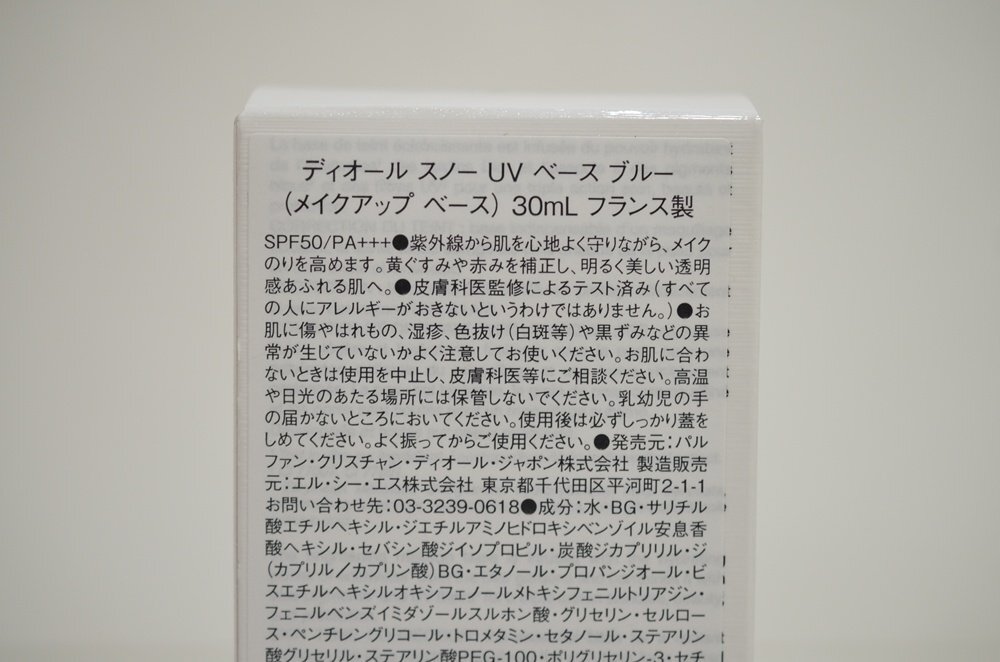 ディオール スノー UV ベース ブルー
(メイクアップ ベース) 30mL フランス製
SPF50/PA+++●紫外線から肌を心地よく守りながら、メイク
のりを高めます。黄ぐすみや赤みを補正し、明るく美しい透明
感あふれる肌へ。●皮膚科医監修によるテスト済み(すべて
の人にアレルギーがおきないというわけではありません。)●お
肌に傷やはれもの、湿疹、色抜け(白斑等)や黒ずみなどの異
常が生じていないかよく注意してお使いください。お肌に合わ
ないときは使用を中止し、皮膚科医等にご相談ください。高温
や日光のあたる場所には保管しないでください。乳幼児の手
の届かないところにおいてください。使用後は必ずしっかり蓋を
しめてください。よく振ってからご使用ください。●発売元:パル
ファン・クリスチャン・ディオール・ジャポン株式会社 製造販売
元:エル・シー・エス株式会社 東京都千代田区平河町2-1-1
お問い合わせ先:03-3239-0618●成分:水・BG・サリチル
酸エチルヘキシル・ジエチルアミノヒドロキシベンゾイル安息香
酸ヘキシル・セバシン酸ジイソプロピル・炭酸ジカプリリル・ジ
(カプリル/カプリン酸)BG・エタノール・プロパンジオール・ビ
スエチルヘキシルオキシフェノールメトキシフェニルトリアジン・
フェニルベンズイミダゾールスルホン酸・グリセリン・セルロー
ス・ペンチレングリコール・トロメタミン・セタノール・ステアリン
酸グリセリル・ステアリン酸PEG-100・ポリグリセリン-3・セチ